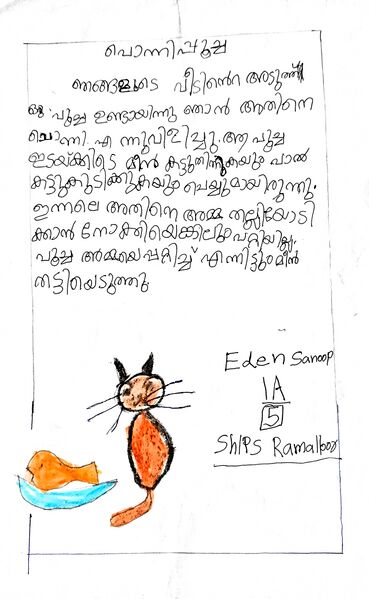 പൊന്നിപ്പൂച്ച
ഞങ്ങളുടെ വീടിൻെറ അടുത്ത്
ഒരു പൂച്ച ഉണ്ടായിന്നു ഞാൻ അതിനെ
പൊന്നി എന്നുവിളിച്ചു. ആ പൂച്ച
ഇടയ്ക്കിടെ മീൻ കട്ടുതിന്നുകയും പാൽ
കട്ടുകുടിക്കുകയും ചെയ്യുമായിരുന്നു.
ഇന്നലെ അതിനെ അമ്മ തല്ലിയോടി
ക്കാൻ നോക്കിയെക്കിലും പറ്റിയില്ല.
പൂച്ച അമ്മയെപ്പറ്റിച്ച് എന്നിട്ടും മീൻ
തട്ടിയെടുത്തു.
Eden Sanoop
1A
5
ShIPS